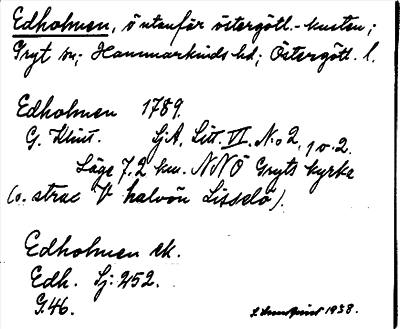 Edholmen, ö utanför östergötl.-kusten;
Gryt sn; Hammarkinds hd; Östergötl. l.
Edholmen 1789.
G. Klint. SjA, Litt. VI. No 2, 1 v. 2.
Läge 7,2 km. NNÖ Gryts kyrka
(o. strax V halvön Lisselö).
Edholmen ek.
Edh. Sj: 252.
G.46.
1938.